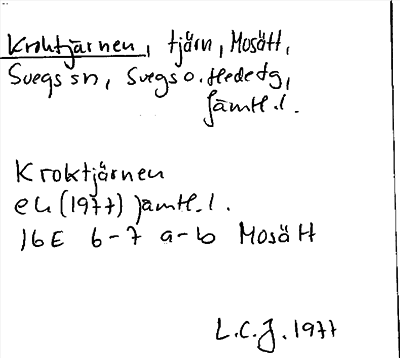 Kroktjärnen, tjärn, Mosätt,
Svegs sn, Svegs o. Hede tg,
Jämtl. l.
Kroktjärnen
ek (1977) Jämtl. l.
16E 6-7 a-b Mosätt
L.C.J. 1977